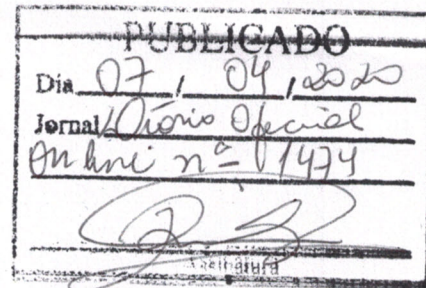 PUBLICADO
Dia 07 / 04 / 2020
Jornal Diário Oficial
On line nº 1474
Assinatura